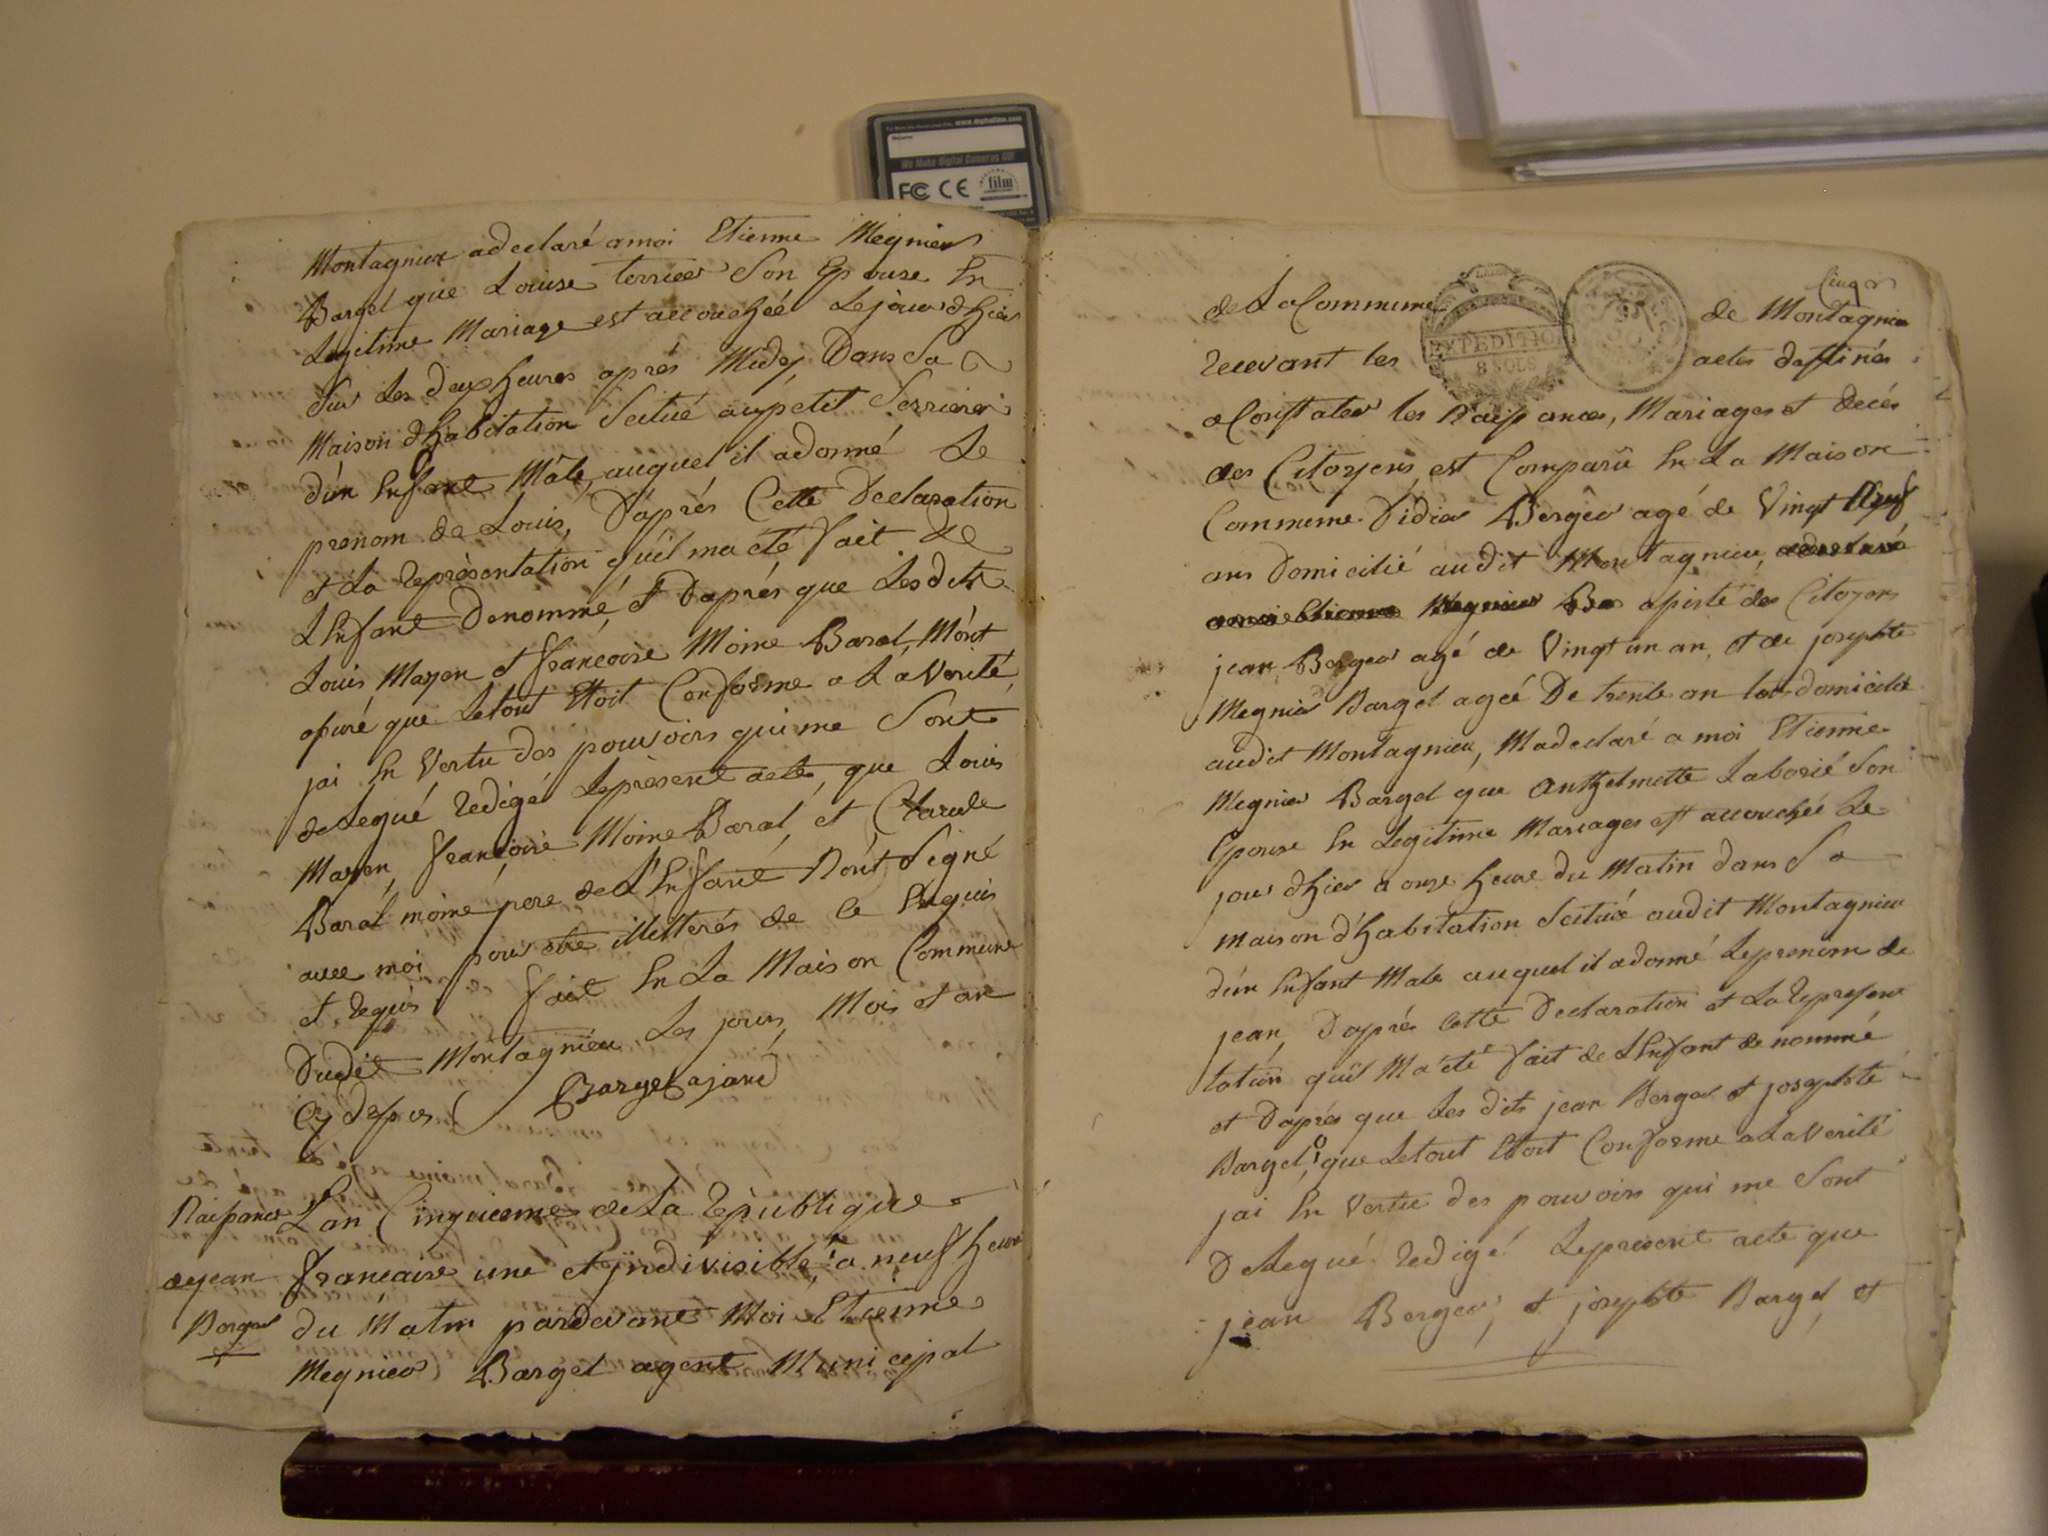 We Make Digital Cameras GO!
FC CE film
Montagnieu adeclaré amoi Etienne Megnier
Bargel que Louise terrier Son Epouse En
Legitime Mariage est accouchée Le jour d'hier
Sur Les deux heures aprés Midy Dans Sa
Maison d'habitation Scitué aupetit Serrieres
d'un Enfant Mâle, auquel il adonné Le
prenom de Louis, D'aprés Cette Declaration
et La representation qu'il ma eté fait de
L'Enfant Denommé, et Daprés que Lesdits
Louis Mayen et françoise Moine Baral, M'ont
assuré que Letout Etoit Conforme a La Verité,
jai En Vertu des pouvoirs qui me Sont
delegué redigé Leprésent acte, que Louis
Mayen, françoise Moine Baral, et Claude
Baral moine pere de L'Enfant N'ont Signé
avec moi pour etre illetterés de ce Enquis
et requis fait En La Maison Commune
Dudit Montagnieu Les jours, Mois et an
Cy dessus Bargel ajant
Naissance
de jean
Berger
L'an Cinquieme de La republique
francaise une et jndivisible, a neuf heures
du Matin pardevant Moi Etienne
Megnier Bargel agent Municipal
Cinq
de La Commune de Montagnieu
recevant les actes destinés
EXPEDITION
8 SOLS
a Constater les Naissances, Mariages et decés
des Citoyens, est Comparû En La Maison
Commune Didier Berger agé de Vingt Neuf
ans Domicilié audit Montagnieu, adeclaré
amoi Etienne Megnier Ba assisté des Citoyens
jean Berger agé de Vingt un an, et de josephte
Megnier Bargel ageé De trente an tous domicilié
audit Montagnieu, Madeclaré a moi Etienne
Megnier Bargel que Anthelmette Laborié Son
Epouse En Legitime Mariages est accouchée Le
jour d'hier a onze heure du Matin dans Sa
maison d'habitation Scitué audit Montagnieu
d'un Enfant Male auquel il adonné Leprenom de
jean, D'aprés cette Declaration et La represen
tation qu'il Ma eté fait de L'Enfant denommé
et D'aprés que Les dits jean Berger et josephte
Bargel, que Letout Etoit Conforme a La Verité
jai En Vertu des pouvoirs qui me Sont
Delegué redigé Leprésent acte que
jean Berger, et josephte Bargel, et